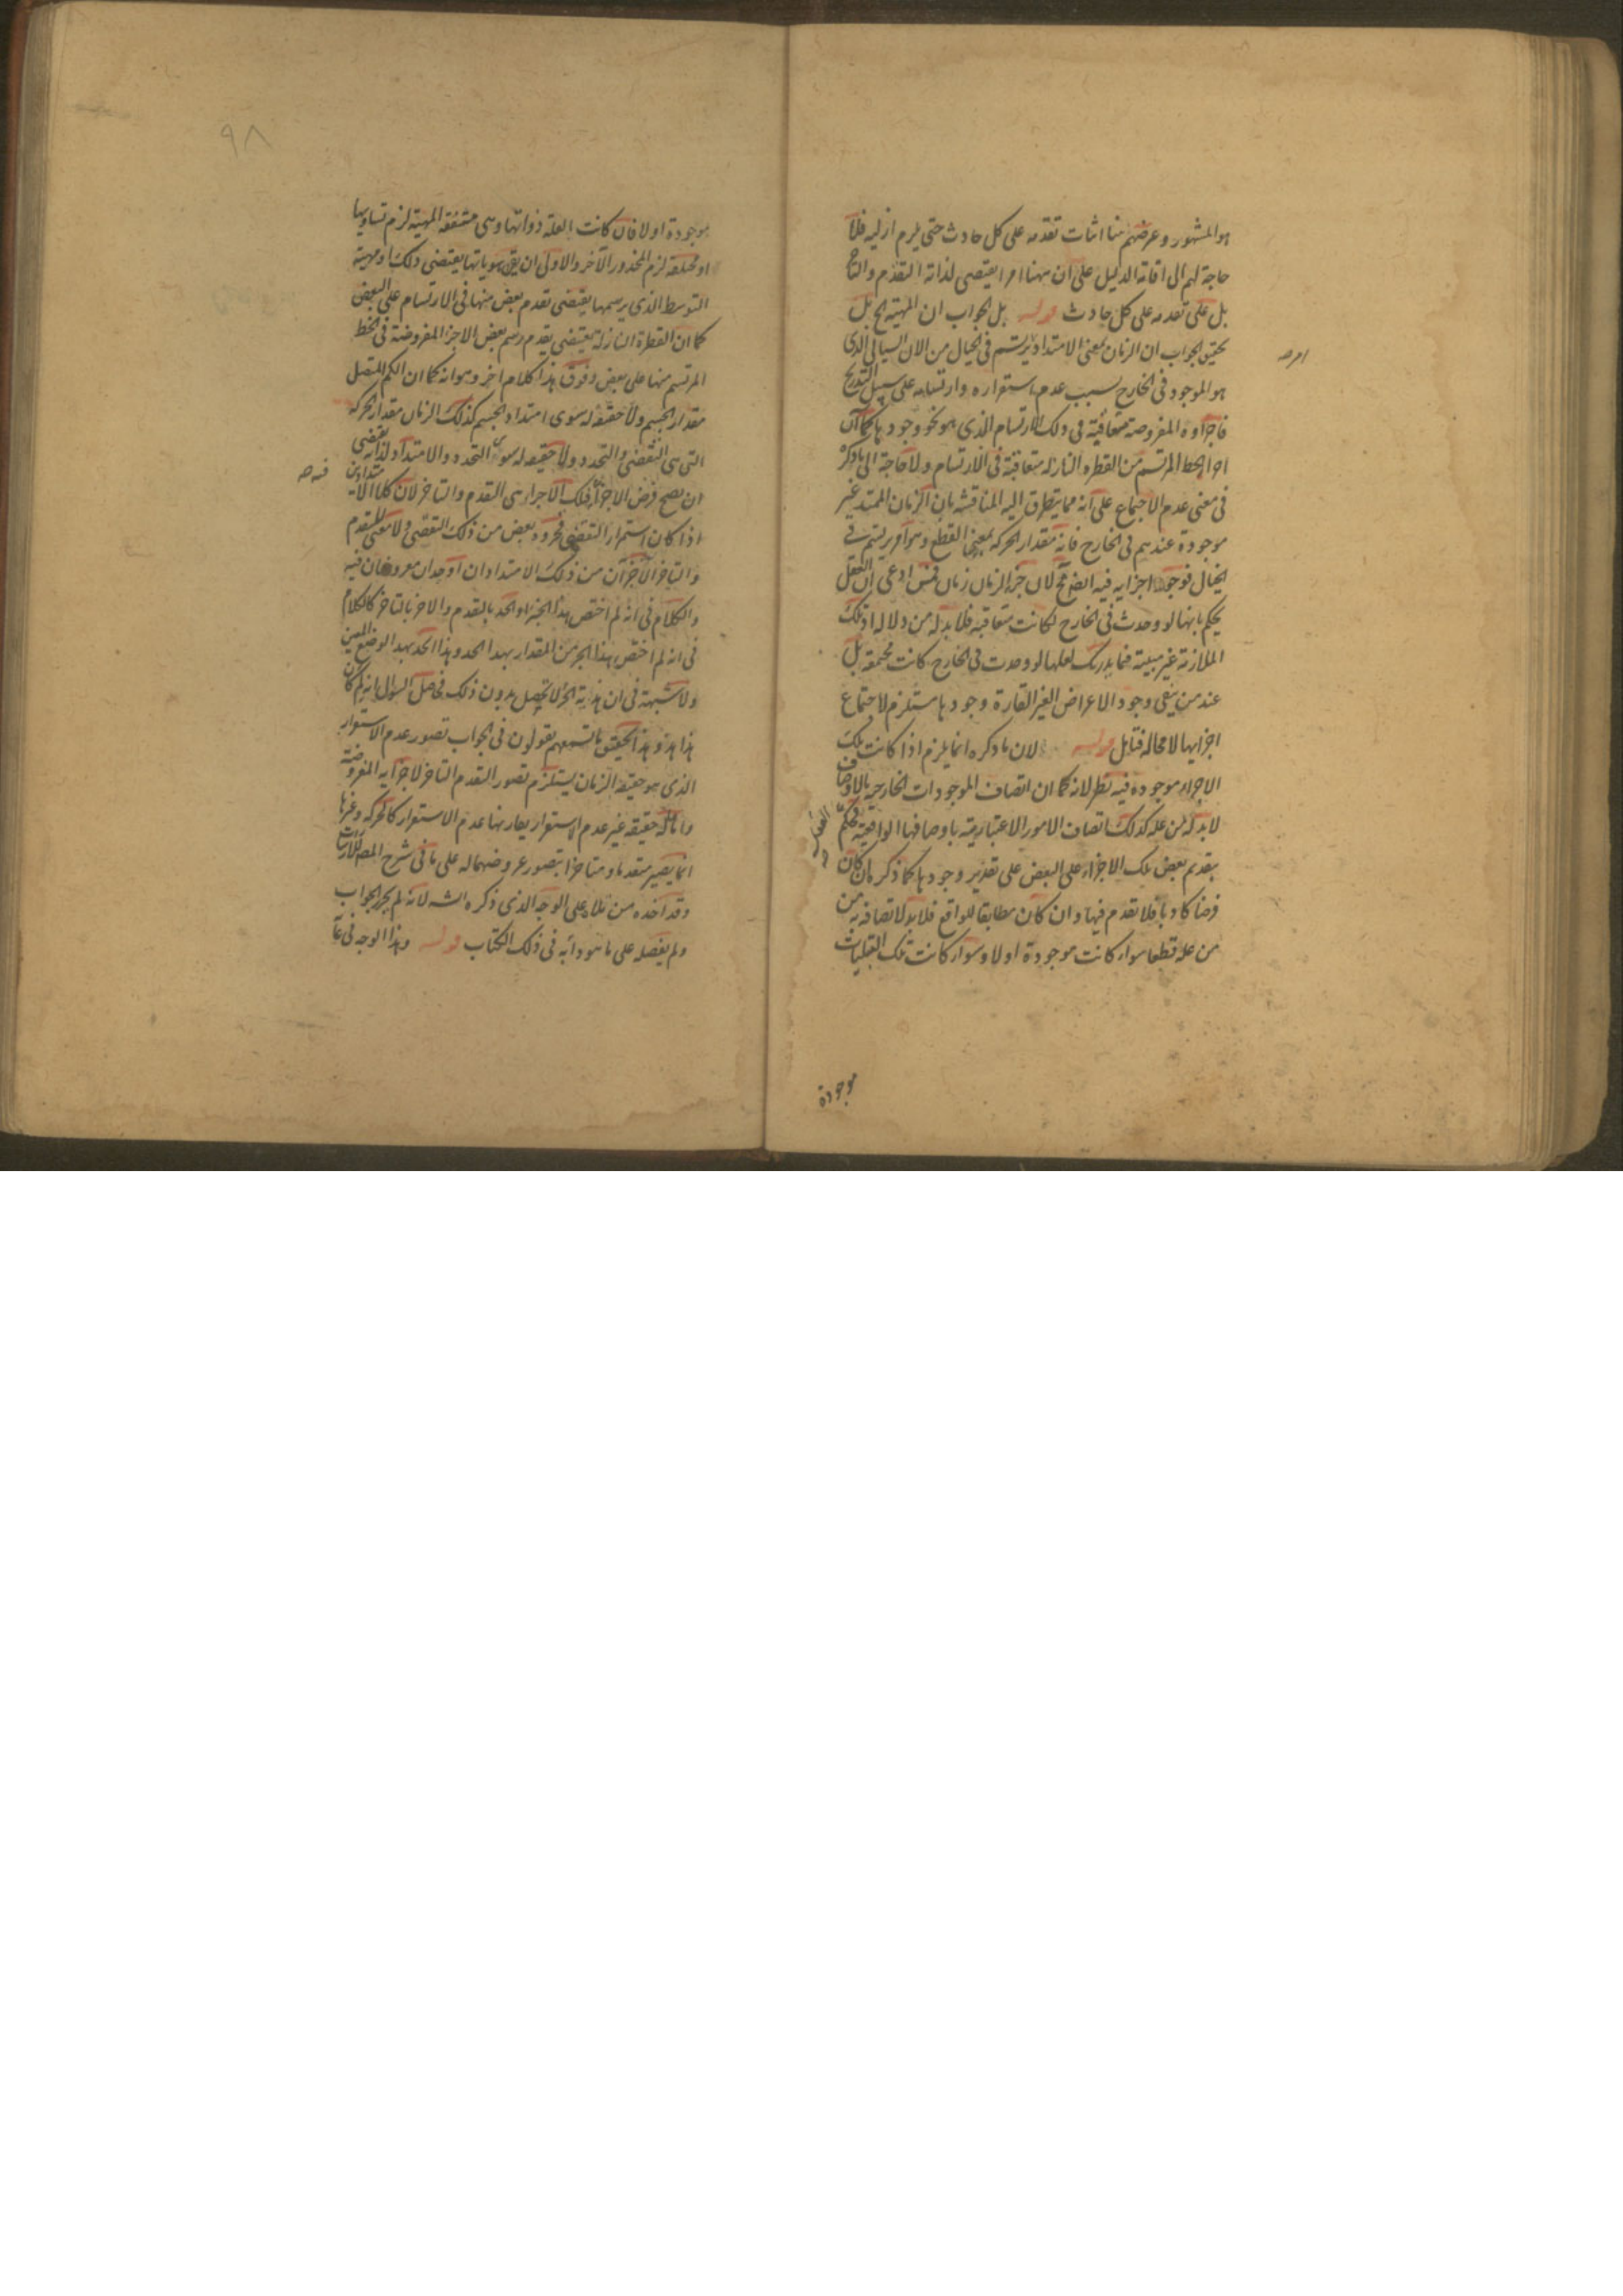 هو المشهور وعرضهم هنا اثبات تقدمه على كل حادث حتى يلزم ازليه فلا
حاجة لهم الى اقامة الدليل على ان ههنا امرا يقتضى لذاته التقدم والتاخر
بل على تقدمه على كل حادث قوله بل الجواب ان المهية الخ بل
تحقيق الجواب ان الزمان بمعنى الامتداد يرتسم فى الخيال من الان السيال الذى
هو الموجود فى الخارج بسبب عدم استقراره وارتسامه على سبيل التدريج
فاجزاوه المفروضة متعاقبة فى ذلك الارتسام الذى هو نحو وجودها كما ان
اجزا الخط المرتسم من القطرة النازلة متعاقبة فى الارتسام ولا حاجة الى ما ذكر
فى معنى عدم الاجتماع على انه مما يتطرق اليه المناقشه بان الزمان الممتد غير
موجودة عندهم فى الخارج فانه مقدار الحركة بمعنى القطع وهو امر يرتسم فى
الخيال فوجود اجزايه فيه ايضا لان جزء الزمان زمان فمن ادعى ان العقل
يحكم بانها لو وجدت فى الخارج لكانت متعاقبة فلا بد له من دلالة اذ تلك
الملازمة غير مبينة فما يدريك لعلها لو وجدت فى الخارج كانت مجتمعة بل
عند من ينفى وجود الاعراض الغير القارة وجودها مستلزم لاجتماع
اجزايها لا محالة فتامل قوله لان ما ذكره انما يلزم اذا كانت تلك
الاجزاء موجودة فيه نظر لانه كما ان اتصاف الموجودات الخارجية بالاوصاف
لا بد له من علة كذلك اتصاف الامور الاعتبارية باوصافها الواقعية فحكم
العقل
بتقدم بعض تلك الاجزاء على البعض على تقدير وجودها كما ذكر ان كان
فرضا كاذبا فلا تقدم فيها وان كان مطابقا للواقع فلا بد لاتصافه به من
من علة قطعا سواء كانت موجودة اولا وسواء كانت تلك القبليات
موجودة
٩٨
موجودة اولا فان كانت العلة ذواتها وهى متفقة المهية لزم تساويها
او مختلفة لزم المحذور الاخر والاولى ان يقال هوياتها يقتضى ذلك او مهية
التوسط الذى يرسمها يقتضى تقدم بعض منها فى الارتسام على البعض
كما ان القطرة النازلة يقتضى تقدم رسم بعض الاجزا المفروضة فى الخط
المرتسم منها على بعض وفوق هذا كلام اخر وهو انه كما ان الكم المتصل
مقدار الجسم ولا حقيقة له سوى امتداد الجسم كذلك الزمان مقدار الحركة
التى هى التقضى والتجدد ولا حقيقة له سوى التجدد والامتداد لذاته يقتضى
ان يصح فرض الاجزاء فتلك الاجزاء هى التقدم والتاخر لان كل الامتدادين
اذا كان استمرار التقضى فجزوه بعض من ذلك التقضى ولا معنى للتقدم
والتاخر الا جزآن من ذلك الامتداد ان او حدان معروضان فيه
والكلام فى انه لم اختص هذا الجزء او الحد بالتقدم والاخر بالتاخر كالكلام
فى انه لم اختص هذا الجزء من المقدار بهذا الحد وهذا الحد بهذا الوضع المعين
ولا شبهة فى ان هذية الجزء لا تحصل بدون ذلك فحاصل السوال انه لم كان
هذا هذا وهذا التحقيق ما تسمعهم يقولون فى الجواب تصور عدم الاستقرار
الذى هو حقيقة الزمان يستلزم تصور التقدم والتاخر لاجزايه المفروضة
واما ماله حقيقة غير عدم الاستقرار يقارنها عدم الاستقرار كالحركة وغيرها
انما يصير متقدما ومتاخرا بتصور عروضهما له على ما فى شرح المص للاشارات
وقد اخذه من ثلاثة على الوجه الذى ذكره الش لانه لم يحرر الجواب
ولم يفصله على ما هو دابه فى ذلك الكتاب قوله وهذا الوجه فى غا